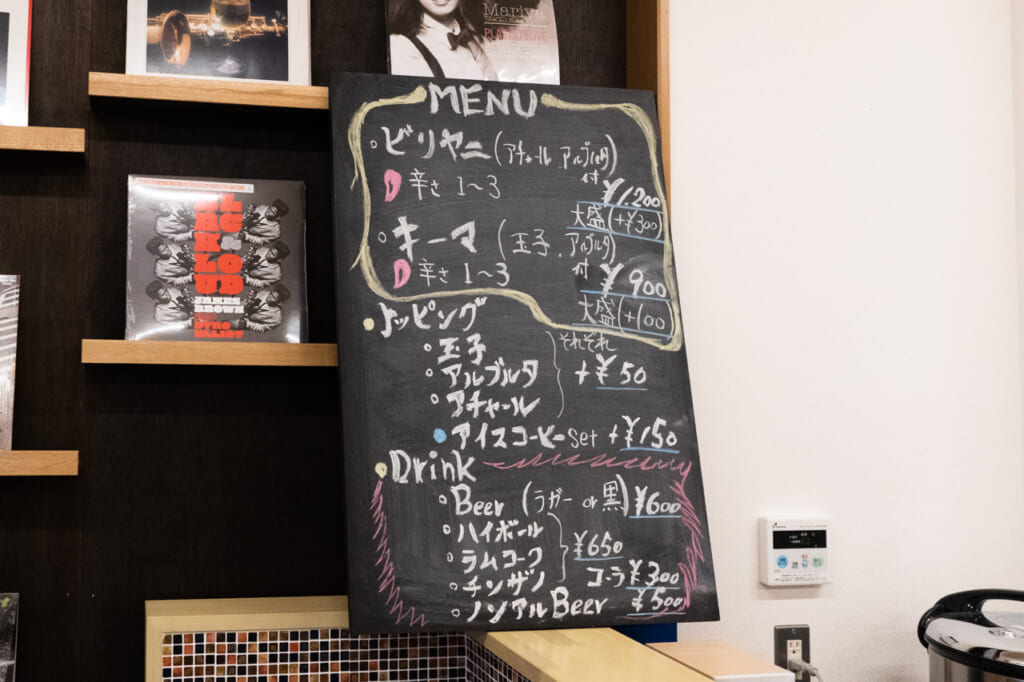 Mariya
TAKEUCHI
PLASTIC LOVE
MENU
ビリヤニ(アチャール アルブルタ)付
辛さ 1〜3
¥1200
大盛(+¥300)
キーマ (玉子、アルブルタ)付
辛さ 1〜3
¥900
大盛(+100)
トッピング
玉子
アルブルタ
アチャール
それぞれ
+¥50
アイスコーヒーset +¥150
Drink
Beer (ラガー or 黒) ¥600
ハイボール
ラムコーク
チンザノ
¥650
コーラ ¥300
ノンアルBeer ¥500
BLACK & LOUD
JAMES
BROWN